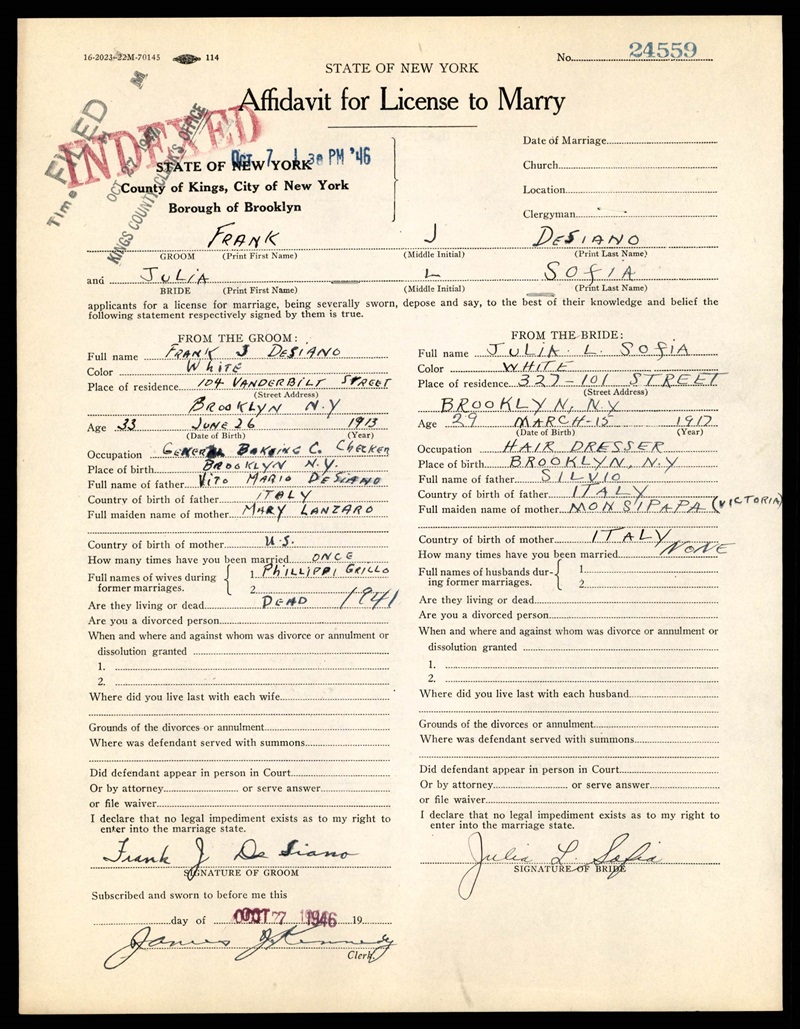 16-2023-22M-70145 114
No. 24559
STATE OF NEW YORK
Affidavit for License to Marry
INDEXED
Time FILED M
OCT 27 1947
KINGS COUNTY CLERK'S OFFICE
OCT 7 1 30 PM '46
STATE OF NEW YORK
County of Kings, City of New York
Borough of Brooklyn
Date of Marriage
Church
Location
Clergyman
FRANK J DESIANO
GROOM (Print First Name) (Middle Initial) (Print Last Name)
and JULIA L SOFIA
BRIDE (Print First Name) (Middle Initial) (Print Last Name)
applicants for a license for marriage, being severally sworn, depose and say, to the best of their knowledge and belief the
following statement respectively signed by them is true.
FROM THE GROOM:
Full name FRANK J DESIANO
Color WHITE
Place of residence 104 VANDERBILT STREET
(Street Address)
BROOKLYN N.Y
Age 33 JUNE 26 1913
(Date of Birth) (Year)
Occupation GENERAL BAKING C. CHECKER
Place of birth BROOKLYN N.Y.
Full name of father VITO MARIO DESIANO
Country of birth of father ITALY
Full maiden name of mother MARY LANZARO
Country of birth of mother U.S.
How many times have you been married ONCE
Full names of wives during
former marriages. 1. PHILLIPPI GRILLO
2.
Are they living or dead DEAD 1941
Are you a divorced person
When and where and against whom was divorce or annulment or
dissolution granted
1.
2.
Where did you live last with each wife
Grounds of the divorces or annulment
Where was defendant served with summons
Did defendant appear in person in Court
Or by attorney or serve answer
or file waiver
I declare that no legal impediment exists as to my right to
enter into the marriage state.
Frank J DeSiano
SIGNATURE OF GROOM
Subscribed and sworn to before me this
day of OCT 7 1946 19
James J Kennedy
Clerk
FROM THE BRIDE:
Full name JULIA L. SOFIA
Color WHITE
Place of residence 327-101 STREET
(Street Address)
BROOKLYN, NY
Age 29 MARCH-15 1917
(Date of Birth) (Year)
Occupation HAIR DRESSER
Place of birth BROOKLYN, N.Y
Full name of father SILVIO
Country of birth of father ITALY
Full maiden name of mother MONSIPAPA (VICTORIA)
Country of birth of mother ITALY
How many times have you been married NONE
Full names of husbands dur-
ing former marriages. 1.
2.
Are they living or dead
Are you a divorced person
When and where and against whom was divorce or annulment or
dissolution granted
1.
2.
Where did you live last with each husband
Grounds of the divorces or annulment
Where was defendant served with summons
Did defendant appear in person in Court
Or by attorney or serve answer
or file waiver
I declare that no legal impediment exists as to my right to
enter into the marriage state.
Julia L Sofia
SIGNATURE OF BRIDE